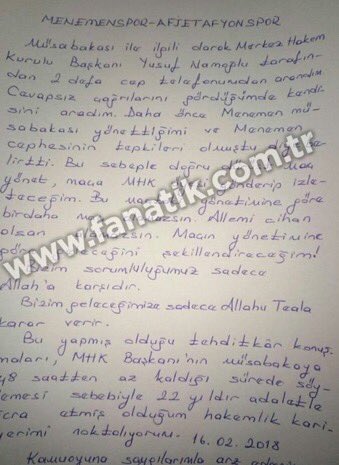 MENEMENSPOR-AFJETAFYONSPOR
Müsabakası ile ilgili olarak Merkez Hakem
Kurulu Başkanı Yusuf Namoğlu tarafın-
dan 2 defa cep telefonumdan arandım
Cevapsız çağrılarını gördüğümde kendi-
sini aradım. Daha önce Menemen mü-
sabakası yönettiğimi ve Menemen
cephesinin tepkileri olmuştu
lirtti. Bu sebeple doğru
yönet, maça MHK gönderip izle-
teceğim. Bu yönetimine göre
birdaha Allemi cihan
olsan Maçın yönetimine
şekillendireceğim!
Bizim sorumluluğumuz sadece
Allah'a karşıdır.
Bizim geleceğimize sadece Allahu Teala
karar verir.
Bu yapmış olduğu tehditkâr konuş-
maları, MHK Başkanı'nın müsabakaya
48 saatten az kaldığı sürede söy-
lemesi sebebiyle 22 yıldır adaletle
icra etmiş olduğum hakemlik kari-
yerimi noktalıyorum. 16.02.2018
Kamuoyuna saygılarımla
www.fanatik.com.tr